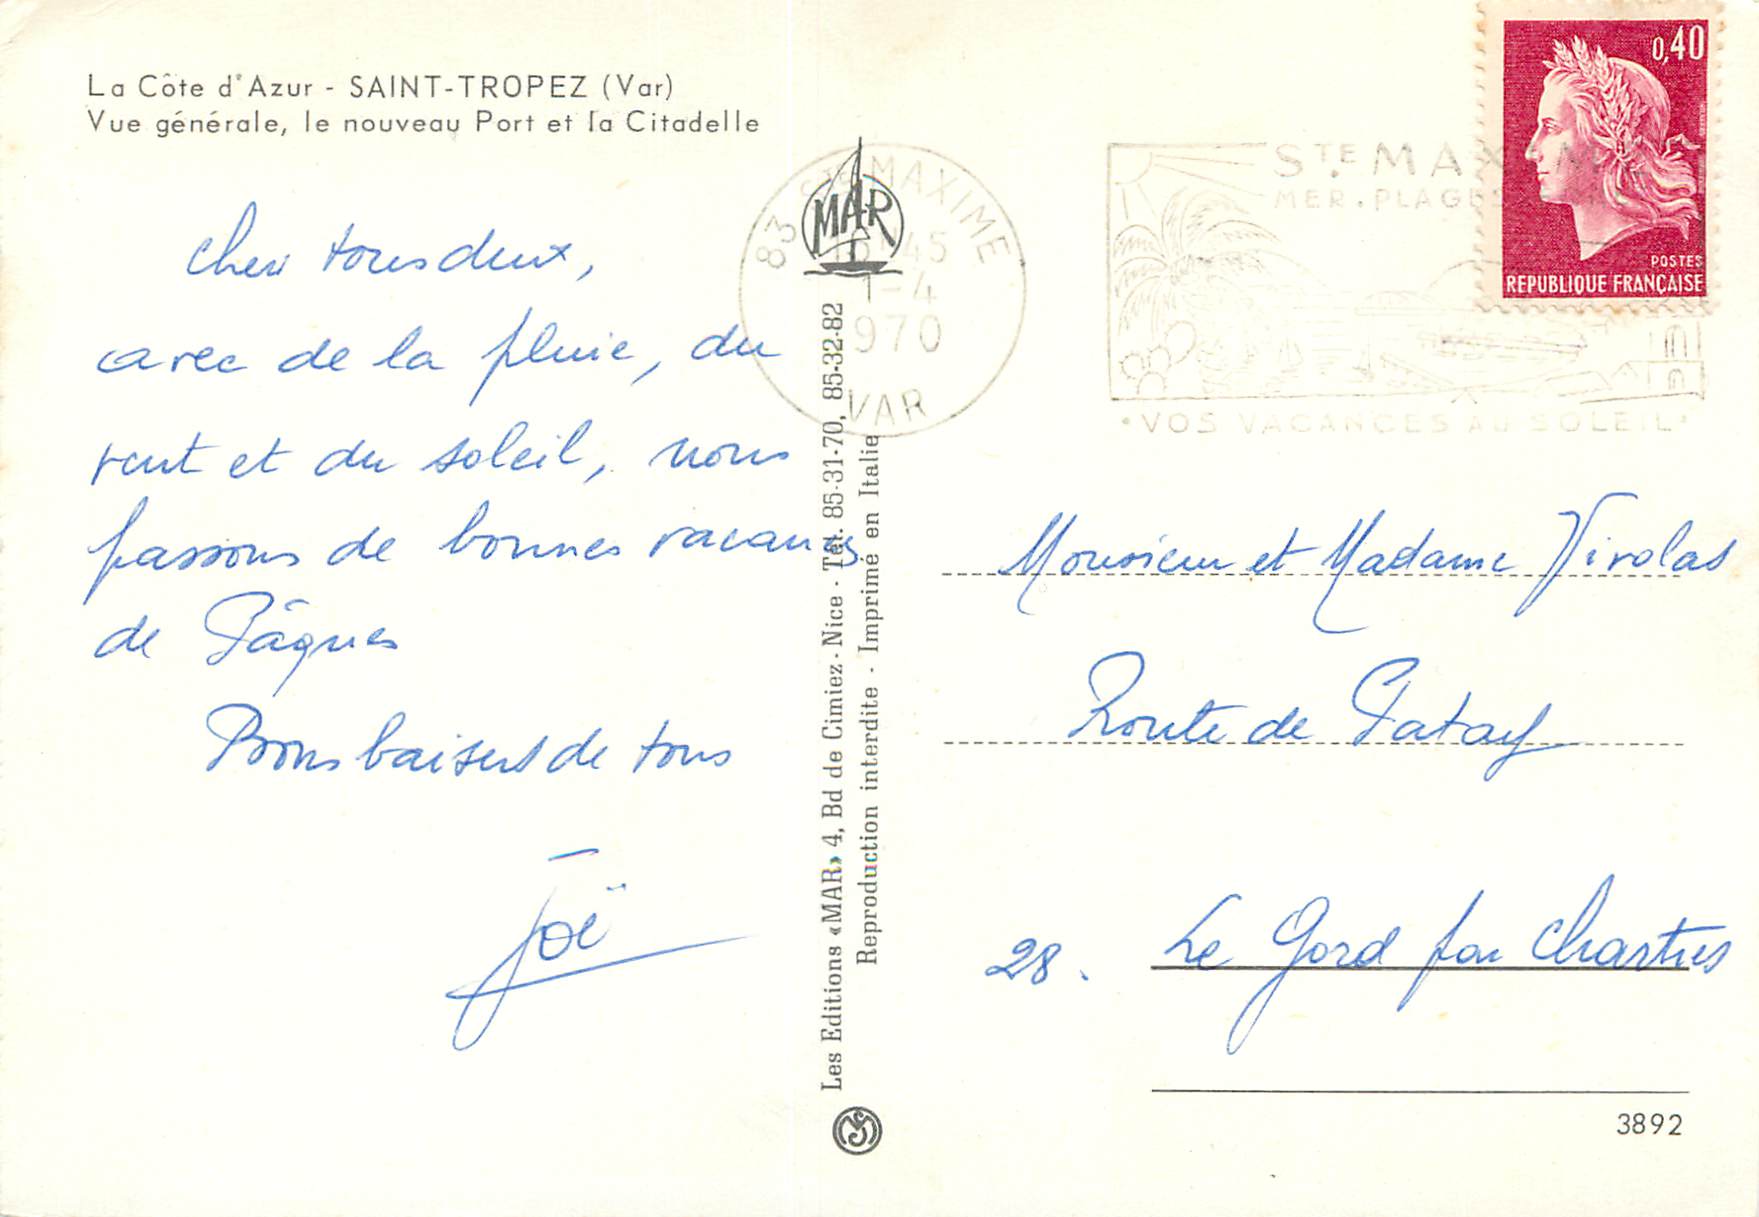 La Côte d'Azur - SAINT-TROPEZ (Var)
Vue générale, le nouveau Port et la Citadelle
Chers tous deux,
avec de la pluie, du
vent et du soleil, nous
passons de bonnes vacances
de Pâques
Bons baisers de tous
Joë
MAR
Les Editions «MAR» 4, Bd de Cimiez - Nice - Tél. 85-31-70, 85-32-82
Reproduction interdite - Imprimé en Italie
83 STE MAXIME
45
1-4
1970
VAR
STE MAXIME
MER. PLAGES
• VOS VACANCES AU SOLEIL •
0,40
POSTES
REPUBLIQUE FRANÇAISE
Monsieur et Madame
Route de Patay
28. Le Gord par Chartres
3892